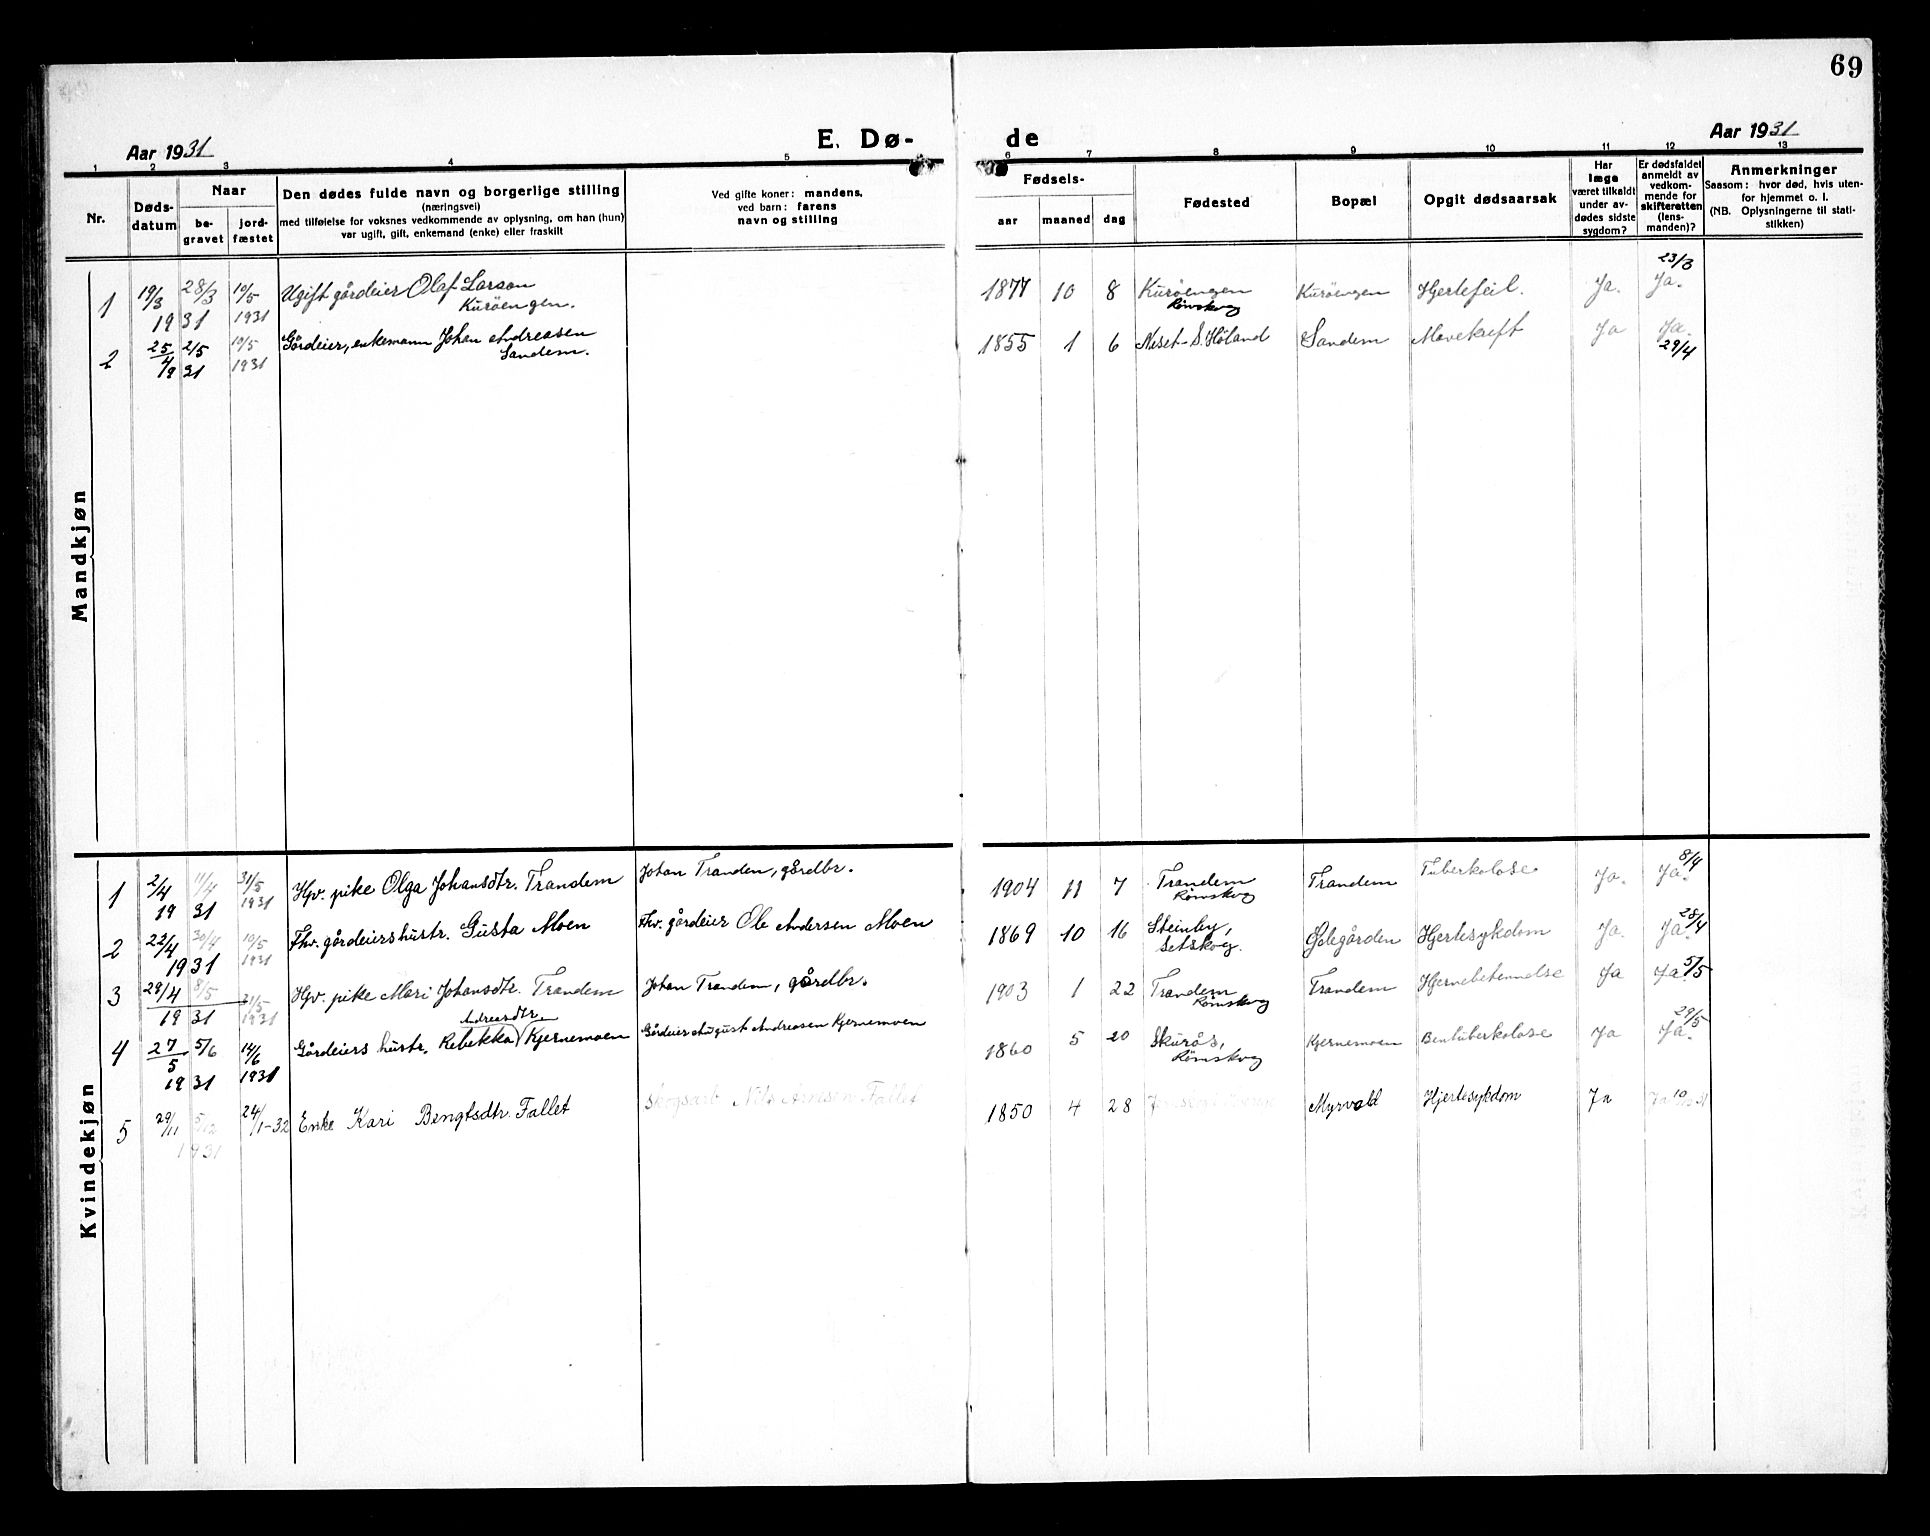 69
Aar 1931
E. Dø-
de
Aar 1931
1 2 3 4 5 6 7 8 9 10 11 12 13
Nr.
Døds-
datum
Naar
be-
gravet
jord-
fæstet
Den dødes fulde navn og borgerlige stilling
(næringsvei)
med tilføielse for voksnes vedkommende av oplysning, om han (hun)
var ugift, gift, enkemand (enke) eller fraskilt
Ved gifte koner: mandens,
ved barn: farens
navn og stilling
Fødsels-
aar
maaned
dag
Fødested
Bopæl
Opgit dødsaarsak
Har
læge
været tilkaldt
under av-
dødes sidste
sygdom?
Er dødsfaldet
anmeldt av
vedkom-
mende for
skifteretten
(lens-
manden)?
Anmerkninger
Saasom: hvor død, hvis uten-
for hjemmet o. l.
(NB. Oplysningerne til stati-
stikken)
Mandkjøn
1 19/3 28/3 10/5 Ugift gårdeier Olaf Larson 1877 10 8 Kurøengen Kurøengen Hjertefeil. Ja. 23/3 Ja.
1931 1931 Kurøengen. Rømskog
2 25/4 2/5 10/5 Gårdeier, enkemann Johan Andreasen 1855 1 6 Neset S. Høland Sandem Mavekreft Ja Ja.
1931 1931 Sandem. 29/4
Kvindekjøn
1 2/4 11/4 31/5 Hjv. pike Olga Johansdtr. Trandem Johan Tranden, gårdbr. 1904 11 7 Trandem Trandem Tuberkolose Ja. Ja. 8/4
1931 1931 Rømskog
2 22/4 30/4 10/5 Fhv. gårdeiershustr. Gusta Moen Fhv. gårdeier Ole Andersen Moen 1869 10 16 Steinby, Gelegården Hjertesykdom Ja. Ja. 28/4
1931 1931 Setskog.
3 29/4 8/5 31/5 Hjv. pike Mari Johansdtr. Trandem Johan Trandem, gårdbr. 1903 1 22 Trandem Trandem Hjernebetennelse Ja Ja 5/5
1931 1931 Rømskog
Andreasdtr.
4 27/5 5/6 14/6 Gårdeiers hustr. Rebekka Kjernemoen Gårdeier August Andreasen Kjernemoen 1860 5 20 Skurås, Kjernemoen Bentuberkolose Ja Ja. 29/5
1931 1931 Rømskog
5 29/11 5/12 24/1-32 Enke Kari Bengtsdtr. Fallet Skogsarb. Nils Fallet 1850 4 28 Myrvold Hjertesykdom Ja Ja
1931